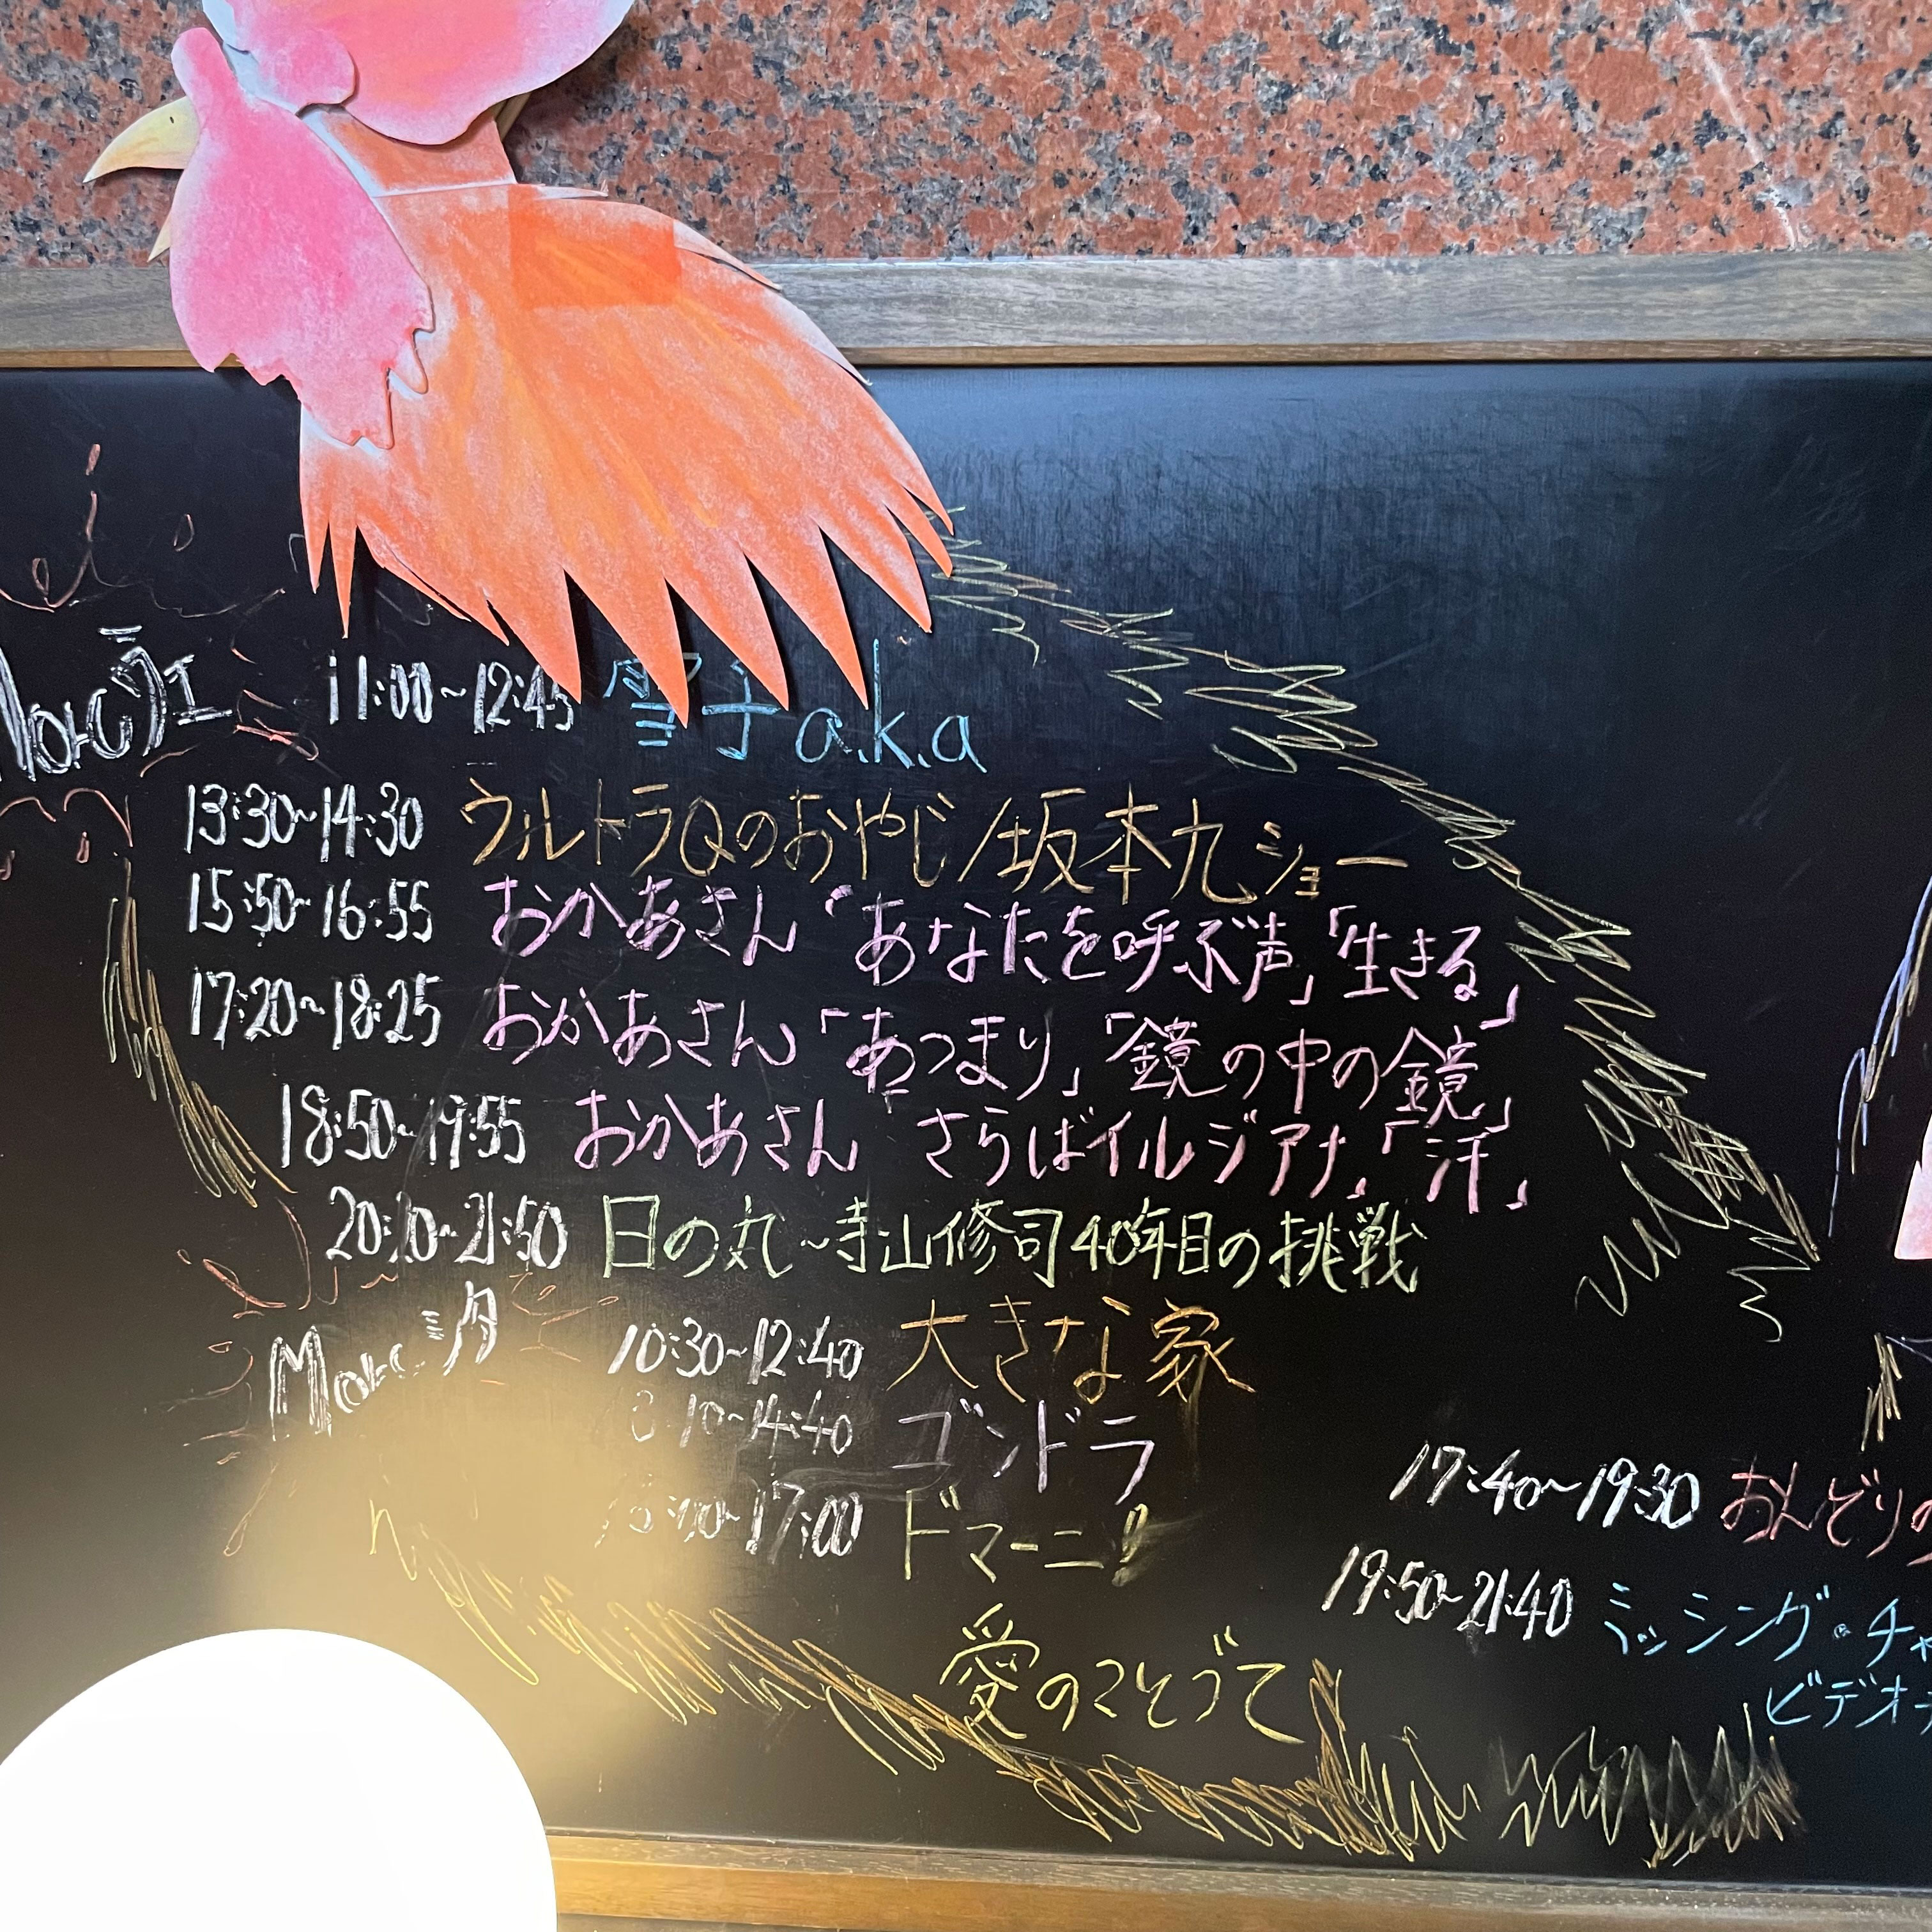 11:00~12:45 雪子a.k.a
13:30~14:30 ウルトラQのおやじ/坂本九ショー
15:50~16:55 おかあさん「あなたを呼ぶ声」「生きる」
17:20~18:25 おかあさん「あつまり」「鏡の中の鏡」
18:50~19:55 おかあさん さらばイルジアナ」「汗」
20:20~21:50 日の丸~寺山修司40年目の挑戦
10:30~12:40 大きな家
14:40 ゴンドラ
17:00 ドマーニ!
愛のことづて
17:40~19:30 おんどりの
19:50~21:40 ミッシング・チャ
ビデオ